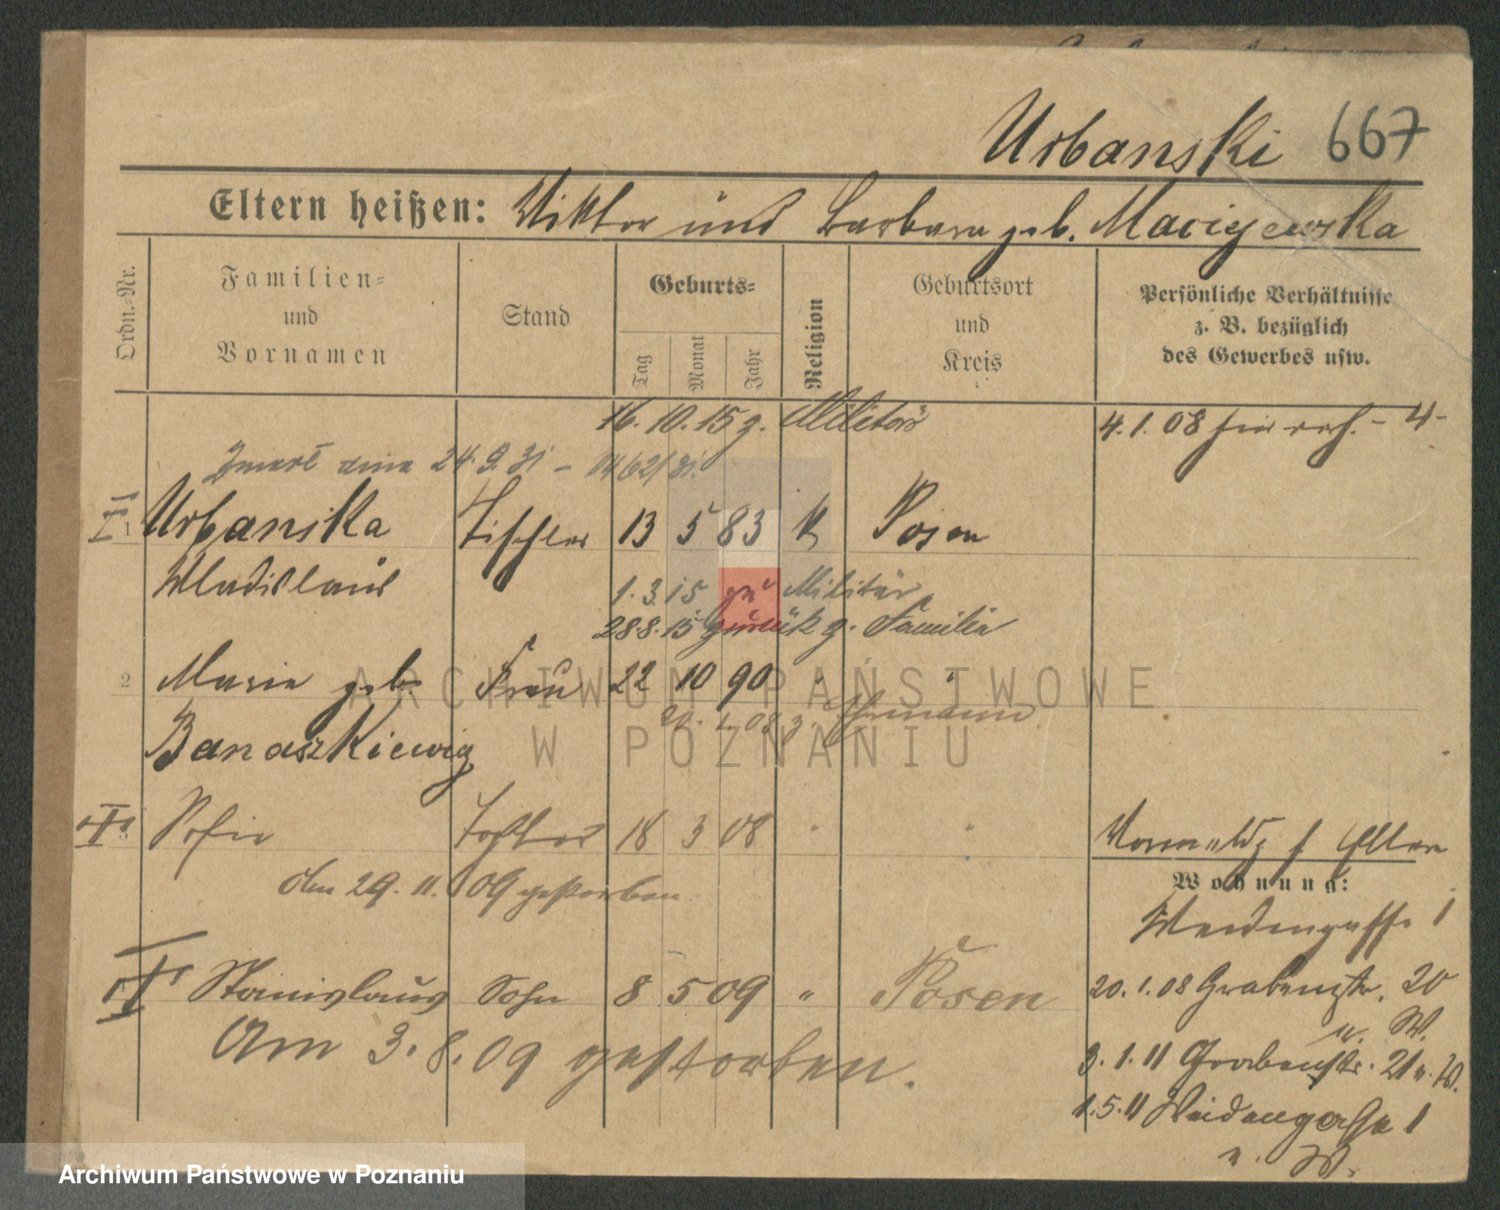 Urbanski 667
Eltern heißen: Viktor und Barbara geb. Maciejewska
Ordn.-Nr.
Familien=
und
Vornamen
Stand
Geburts=
Tag
Monat
Jahr
Religion
Geburtsort
und
Kreis
Persönliche Verhältnisse
z. B. bezüglich
des Gewerbes usw.
16. 10. 15 z. Militär
4. 1. 08
24. 9. 31 – 1462/31.
1 Urbanska Tischler 13 5 83 K Posen
Wladislaus
1. 3. 15 zu Militär
28.8.15 zurück z. Familie
2 Marie geb. Frau 22 10 90 " "
20. 1. 08 z. Ehemann
Banaszkiewicz
3 Sofie Tochter 18 3 08 " "
Eltern
den 29. 11. 09 gestorben
Wohnung:
Weidengasse 1
Stanislaus Sohn 8 5 09 " Posen
20. 1. 08 Grabenstr. 20
n. W.
Am 3. 8. 09 gestorben.
3. 1. 11 Grabenstr. 21 n. W.
1. 5. 11 Weidengasse 1
n. W.
ARCHIWUM PAŃSTWOWE
W POZNANIU
Archiwum Państwowe w Poznaniu